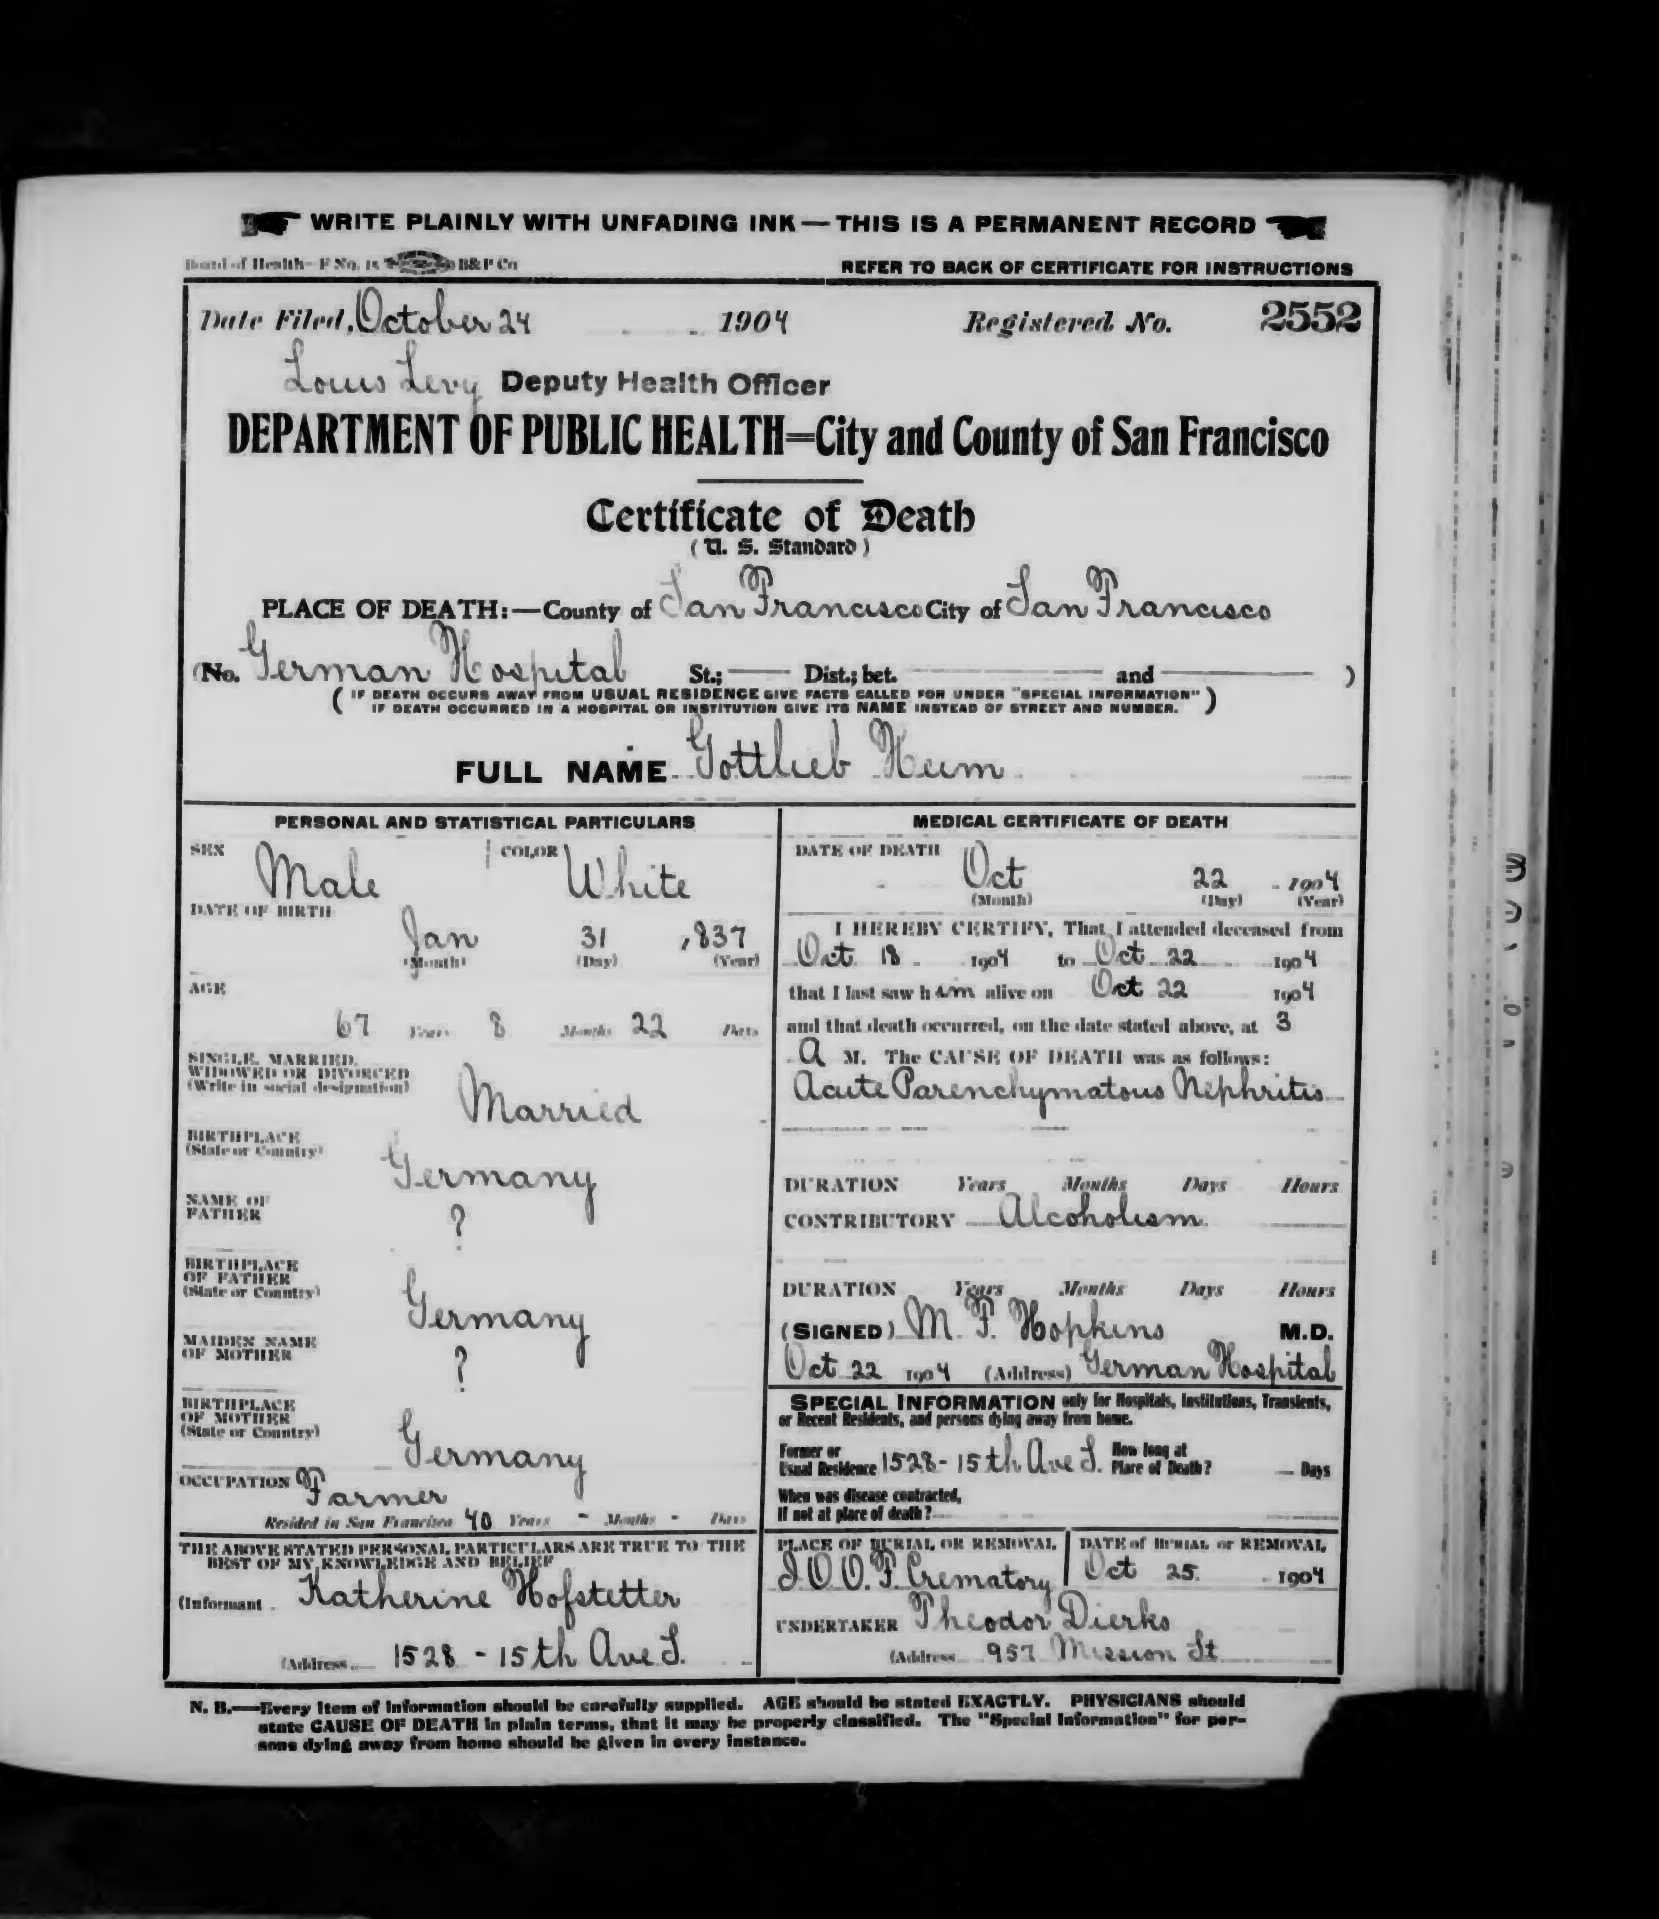 WRITE PLAINLY WITH UNFADING INK — THIS IS A PERMANENT RECORD
Board of Health—F No. 15 B&P Co
REFER TO BACK OF CERTIFICATE FOR INSTRUCTIONS
Date Filed, October 24 1904 Registered No. 2552
Louis Levy Deputy Health Officer
DEPARTMENT OF PUBLIC HEALTH=City and County of San Francisco
Certificate of Death
(U. S. Standard)
PLACE OF DEATH:—County of San Francisco City of San Francisco
(No. German Hospital St.; —— Dist.; bet. —— and —— )
(IF DEATH OCCURS AWAY FROM USUAL RESIDENCE GIVE FACTS CALLED FOR UNDER "SPECIAL INFORMATION"
IF DEATH OCCURRED IN A HOSPITAL OR INSTITUTION GIVE ITS NAME INSTEAD OF STREET AND NUMBER.)
FULL NAME Gottlieb Heim
PERSONAL AND STATISTICAL PARTICULARS
SEX Male COLOR White
DATE OF BIRTH
Jan 31 1837
(Month) (Day) (Year)
AGE
67 Years 8 Months 22 Days
SINGLE, MARRIED,
WIDOWED OR DIVORCED
(Write in social designation)
Married
BIRTHPLACE
(State or Country)
Germany
NAME OF
FATHER
?
BIRTHPLACE
OF FATHER
(State or Country)
Germany
MAIDEN NAME
OF MOTHER
?
BIRTHPLACE
OF MOTHER
(State or Country)
Germany
OCCUPATION Farmer
Resided in San Francisco 40 Years - Months - Days
THE ABOVE STATED PERSONAL PARTICULARS ARE TRUE TO THE
BEST OF MY KNOWLEDGE AND BELIEF
(Informant Katherine Hofstetter
(Address 1528 - 15th Ave S.
MEDICAL CERTIFICATE OF DEATH
DATE OF DEATH
Oct 22 1904
(Month) (Day) (Year)
I HEREBY CERTIFY, That I attended deceased from
Oct 18 1904 to Oct 22 1904
that I last saw h im alive on Oct 22 1904
and that death occurred, on the date stated above, at 3
A M. The CAUSE OF DEATH was as follows:
Acute Parenchymatous Nephritis
DURATION Years Months Days Hours
CONTRIBUTORY Alcoholism
DURATION Years Months Days Hours
(SIGNED) M. F. Hopkins M.D.
Oct 22 1904 (Address) German Hospital
SPECIAL INFORMATION only for Hospitals, Institutions, Transients,
or Recent Residents, and persons dying away from home.
Former or
Usual Residence 1528- 15th Ave S. How long at
Place of Death? — Days
When was disease contracted,
If not at place of death?
PLACE OF BURIAL OR REMOVAL
I.O.O.F. Crematory
DATE of BURIAL or REMOVAL
Oct 25. 1904
UNDERTAKER Theodor Dierks
(Address 957 Mission St
N. B.—Every item of information should be carefully supplied. AGE should be stated EXACTLY. PHYSICIANS should
state CAUSE OF DEATH in plain terms, that it may be properly classified. The "Special Information" for per-
sons dying away from home should be given in every instance.